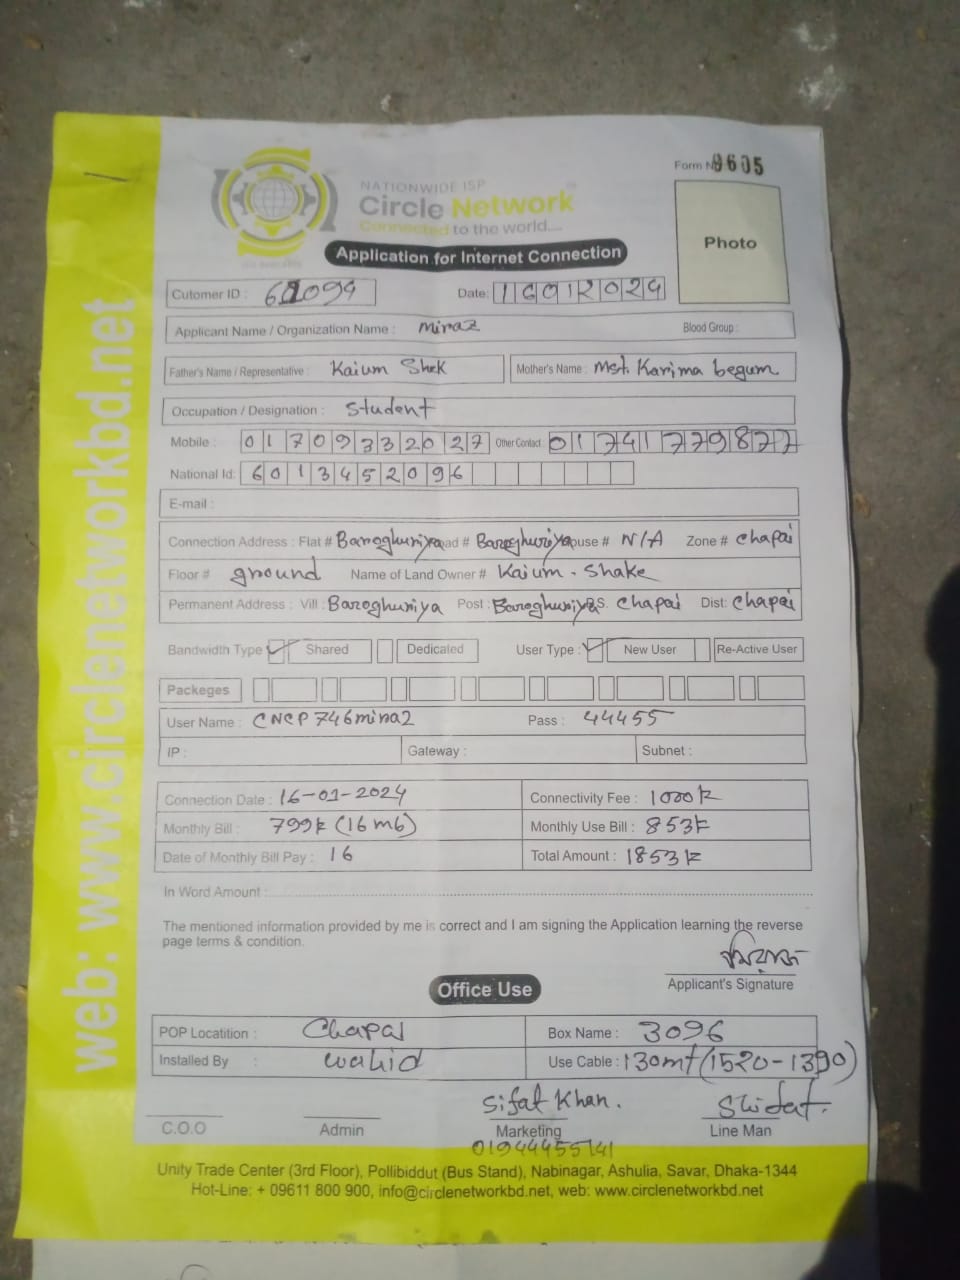 Form No 9605
NATIONWIDE ISP
Circle Network
Connected to the world....
Application for Internet Connection
Photo
Cutomer ID : 61099 Date: 16012024
Applicant Name / Organization Name : Miraz Blood Group :
Father's Name / Representative : Kaium Shek Mother's Name : Mst. Karima begum
Occupation / Designation : Student
Mobile : 01709332027 Other Contact 01741779877
National Id: 6013452096
E-mail :
Connection Address : Flat # Baroghuriya Road # Baroghuriya House # N/A Zone # chapai
Floor # ground Name of Land Owner # Kaium . Shake
Permanent Address : Vill : Baroghuriya Post : Baroghuriya P.S. Chapai Dist: Chapai
Bandwidth Type ✓ Shared Dedicated User Type : ✓ New User Re-Active User
Packeges
User Name : CNCP746miraz Pass : 44455
IP : Gateway : Subnet :
Connection Date : 16-01-2024 Connectivity Fee : 1000k
Monthly Bill : 799k (16 mb) Monthly Use Bill : 853k
Date of Monthly Bill Pay : 16 Total Amount : 1853k
In Word Amount :
The mentioned information provided by me is correct and I am signing the Application learning the reverse
page terms & condition.
Applicant's Signature
Office Use
POP Locatition : Chapai Box Name : 3096
Installed By : wahid Use Cable : 130mt (1520-1390)
Sifat Khan.
C.O.O Admin Marketing Line Man
01944455141
Unity Trade Center (3rd Floor), Pollibiddut (Bus Stand), Nabinagar, Ashulia, Savar, Dhaka-1344
Hot-Line: + 09611 800 900, info@circlenetworkbd.net, web: www.circlenetworkbd.net
web: www.circlenetworkbd.net